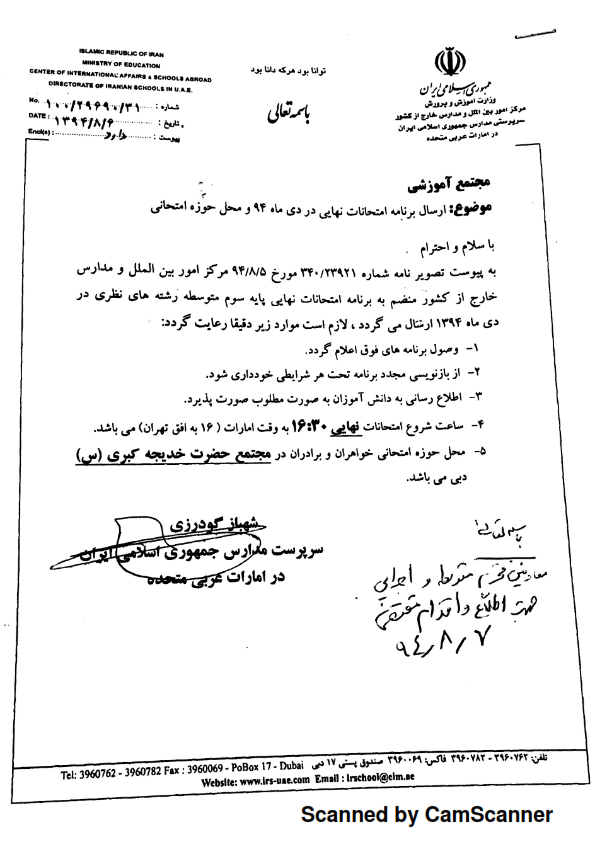 ISLAMIC REPUBLIC OF IRAN
MINISTRY OF EDUCATION
CENTER OF INTERNATIONAL AFFAIRS & SCHOOLS ABROAD
DIRECTORATE OF IRANIAN SCHOOLS IN U.A.E.
No. ۱۰۰/۲۹۶۹۰/۳۱ شماره :
DATE : ۱۳۹۴/۸/۶ تاریخ :
Encl(s) : دارد پیوست :
توانا بود هرکه دانا بود
باسمه تعالی
جمهوری اسلامی ایران
وزارت آموزش و پرورش
مرکز امور بین الملل و مدارس خارج از کشور
سرپرستی مدارس جمهوری اسلامی ایران
در امارات عربی متحده
مجتمع آموزشی
موضوع: ارسال برنامه امتحانات نهایی در دی ماه ۹۴ و محل حوزه امتحانی
با سلام و احترام
به پیوست تصویر نامه شماره ۳۴۰/۲۳۹۲۱ مورخ ۹۴/۸/۵ مرکز امور بین الملل و مدارس
خارج از کشور منضم به برنامه امتحانات نهایی پایه سوم متوسطه رشته های نظری در
دی ماه ۱۳۹۴ ارسال می گردد ، لازم است موارد زیر دقیقا رعایت گردد:
۱- وصول برنامه های فوق اعلام گردد.
۲- از بازنویسی مجدد برنامه تحت هر شرایطی خودداری شود.
۳- اطلاع رسانی به دانش آموزان به صورت مطلوب صورت پذیرد.
۴- ساعت شروع امتحانات نهایی ۱۶:۳۰ به وقت امارات ( ۱۶ به افق تهران) می باشد.
۵- محل حوزه امتحانی خواهران و برادران در مجتمع حضرت خدیجه کبری (س)
دبی می باشد.
شهباز گودرزی
سرپرست مدارس جمهوری اسلامی ایران
در امارات عربی متحده
باسمه تعالی
معاونین محترم متوسطه و اجرایی
جهت اطلاع و اقدام مقتضی
۹۴/۸/۷
تلفن: ۳۹۶۰۷۶۲ - ۳۹۶۰۷۸۲ فاکس: ۳۹۶۰۰۶۹ صندوق پستی ۱۷ دبی
Tel: 3960762 - 3960782 Fax : 3960069 - PoBox 17 - Dubai
Website: www.irs-uae.com Email : irschool@eim.ae
Scanned by CamScanner